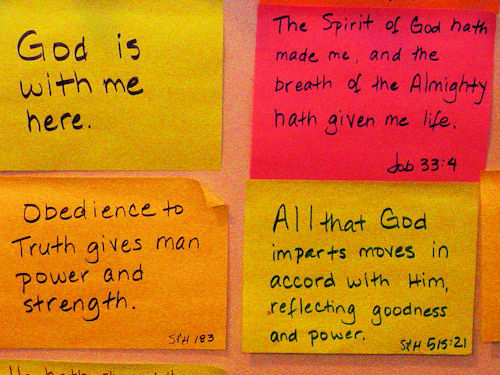 God is
with me
here.
The Spirit of God hath
made me, and the
breath of the Almighty
hath given me life.
Job 33:4
Obedience to
Truth gives man
power and
strength.
S&H 183
All that God
imparts moves in
accord with Him,
reflecting goodness
and power.
S&H 515:21